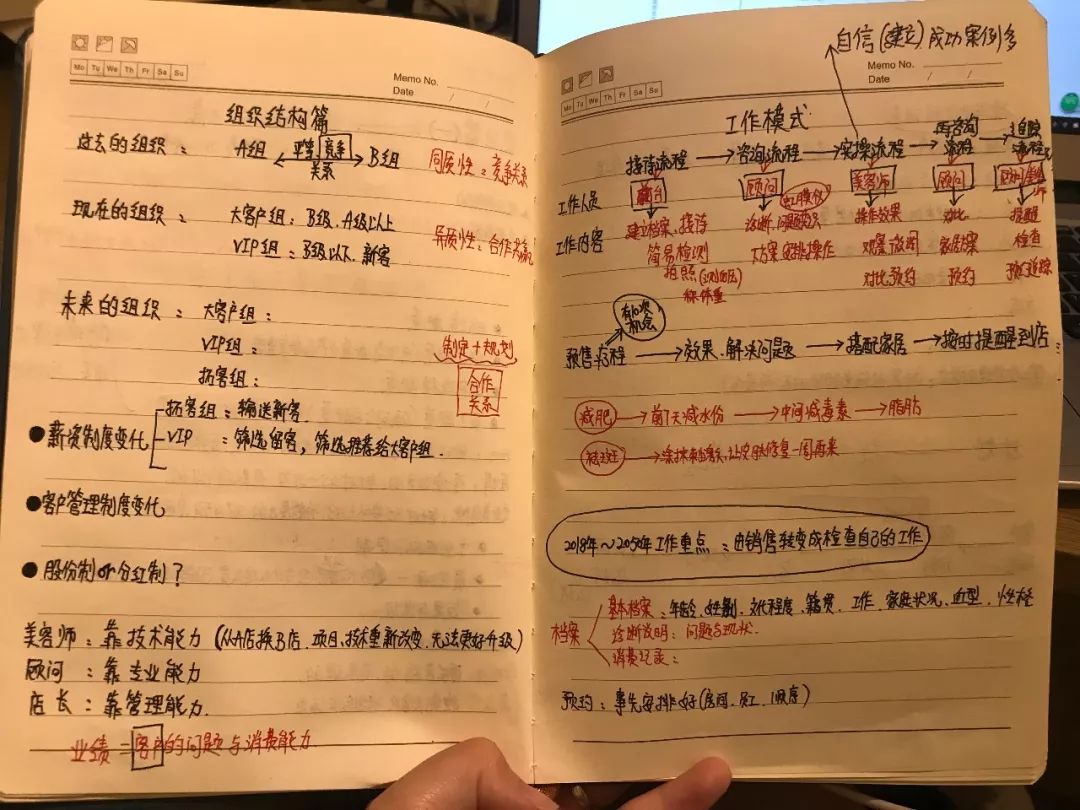 Mo Tu We Th Fr Sa Su
Memo No.
Date / /
组织结构篇
过去的组织： A组 平等 竞争 关系 B组 同质性：竞争关系
现在的组织： 大客户组：B级.A级以上
VIP组：B级以下.新客
异质性：合作共赢
未来的组织： 大客户组：
VIP组：
拓客组：
制定+规划
合作关系
●薪资制度变化
拓客组：输送新客
VIP ：筛选留客，筛选推荐给大客户组.
●客户管理制度变化
●股份制or分红制？
美容师：靠技术能力（从A店换B店.项目.技术重新改变.无法更好升级）
顾问：靠专业能力
店长：靠管理能力.
业绩=客户的问题与消费能力
自信(建立)成功案例多
Mo Tu We Th Fr Sa Su
Memo No.
Date / /
工作模式
接待流程 → 咨询流程 → 实操流程 → 再咨询流程 → 追踪流程
工作人员 顾问 美容师 顾问
工作内容 建立档案、接待 诊断、 操作效果 对比 提醒
简易检测 方案 安排操作 家居 检查
拍照
称体重
对比预约 预约
有10次机会
预售疗程 → 效果.解决问题 → 搭配家居 → 按时提醒到店：
减肥 → 前7天减水份 → 中间减毒素 → 脂肪
祛斑 一周再来
2018年～2050年工作重点：由销售转变成检查自己的工作
档案
基本档案：年龄、性别、文化程度、籍贯、工作、家庭状况、血型、性格
诊断说明：问题与现状.
消费记录：
预约：事先安排好(房间.员工.顺序)